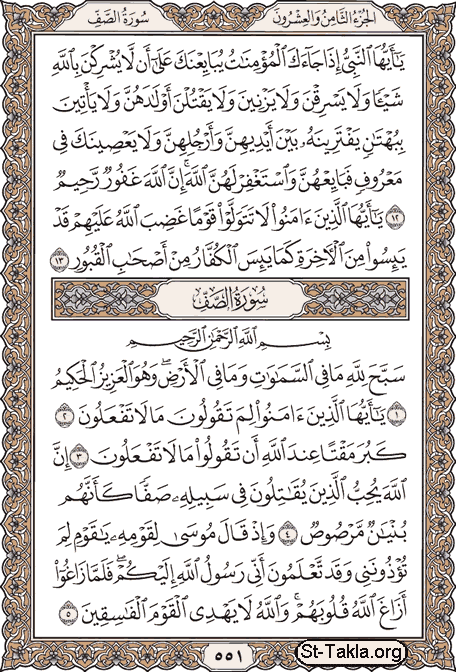 الجزء الثامن والعشرون
سورة الصف
يَٰٓأَيُّهَا ٱلنَّبِيُّ إِذَا جَآءَكَ ٱلْمُؤْمِنَٰتُ يُبَايِعْنَكَ عَلَىٰٓ أَن لَّا يُشْرِكْنَ بِٱللَّهِ
شَيْـًٔا وَلَا يَسْرِقْنَ وَلَا يَزْنِينَ وَلَا يَقْتُلْنَ أَوْلَٰدَهُنَّ وَلَا يَأْتِينَ
بِبُهْتَٰنٍ يَفْتَرِينَهُۥ بَيْنَ أَيْدِيهِنَّ وَأَرْجُلِهِنَّ وَلَا يَعْصِينَكَ فِى
مَعْرُوفٍ فَبَايِعْهُنَّ وَٱسْتَغْفِرْ لَهُنَّ ٱللَّهَ إِنَّ ٱللَّهَ غَفُورٌ رَّحِيمٌ
١٢ يَٰٓأَيُّهَا ٱلَّذِينَ ءَامَنُوا۟ لَا تَتَوَلَّوْا۟ قَوْمًا غَضِبَ ٱللَّهُ عَلَيْهِمْ قَدْ
يَئِسُوا۟ مِنَ ٱلْءَاخِرَةِ كَمَا يَئِسَ ٱلْكُفَّارُ مِنْ أَصْحَٰبِ ٱلْقُبُورِ ١٣
سُورَةُ الصَّفِّ
بِسْمِ ٱللَّهِ ٱلرَّحْمَٰنِ ٱلرَّحِيمِ
سَبَّحَ لِلَّهِ مَا فِى ٱلسَّمَٰوَٰتِ وَمَا فِى ٱلْأَرْضِ وَهُوَ ٱلْعَزِيزُ ٱلْحَكِيمُ
١ يَٰٓأَيُّهَا ٱلَّذِينَ ءَامَنُوا۟ لِمَ تَقُولُونَ مَا لَا تَفْعَلُونَ ٢
كَبُرَ مَقْتًا عِندَ ٱللَّهِ أَن تَقُولُوا۟ مَا لَا تَفْعَلُونَ ٣ إِنَّ
ٱللَّهَ يُحِبُّ ٱلَّذِينَ يُقَٰتِلُونَ فِى سَبِيلِهِۦ صَفًّا كَأَنَّهُم
بُنْيَٰنٌ مَّرْصُوصٌ ٤ وَإِذْ قَالَ مُوسَىٰ لِقَوْمِهِۦ يَٰقَوْمِ لِمَ
تُؤْذُونَنِى وَقَد تَّعْلَمُونَ أَنِّى رَسُولُ ٱللَّهِ إِلَيْكُمْ فَلَمَّا زَاغُوٓا۟
أَزَاغَ ٱللَّهُ قُلُوبَهُمْ وَٱللَّهُ لَا يَهْدِى ٱلْقَوْمَ ٱلْفَٰسِقِينَ ٥
٥٥١
St-Takla.org